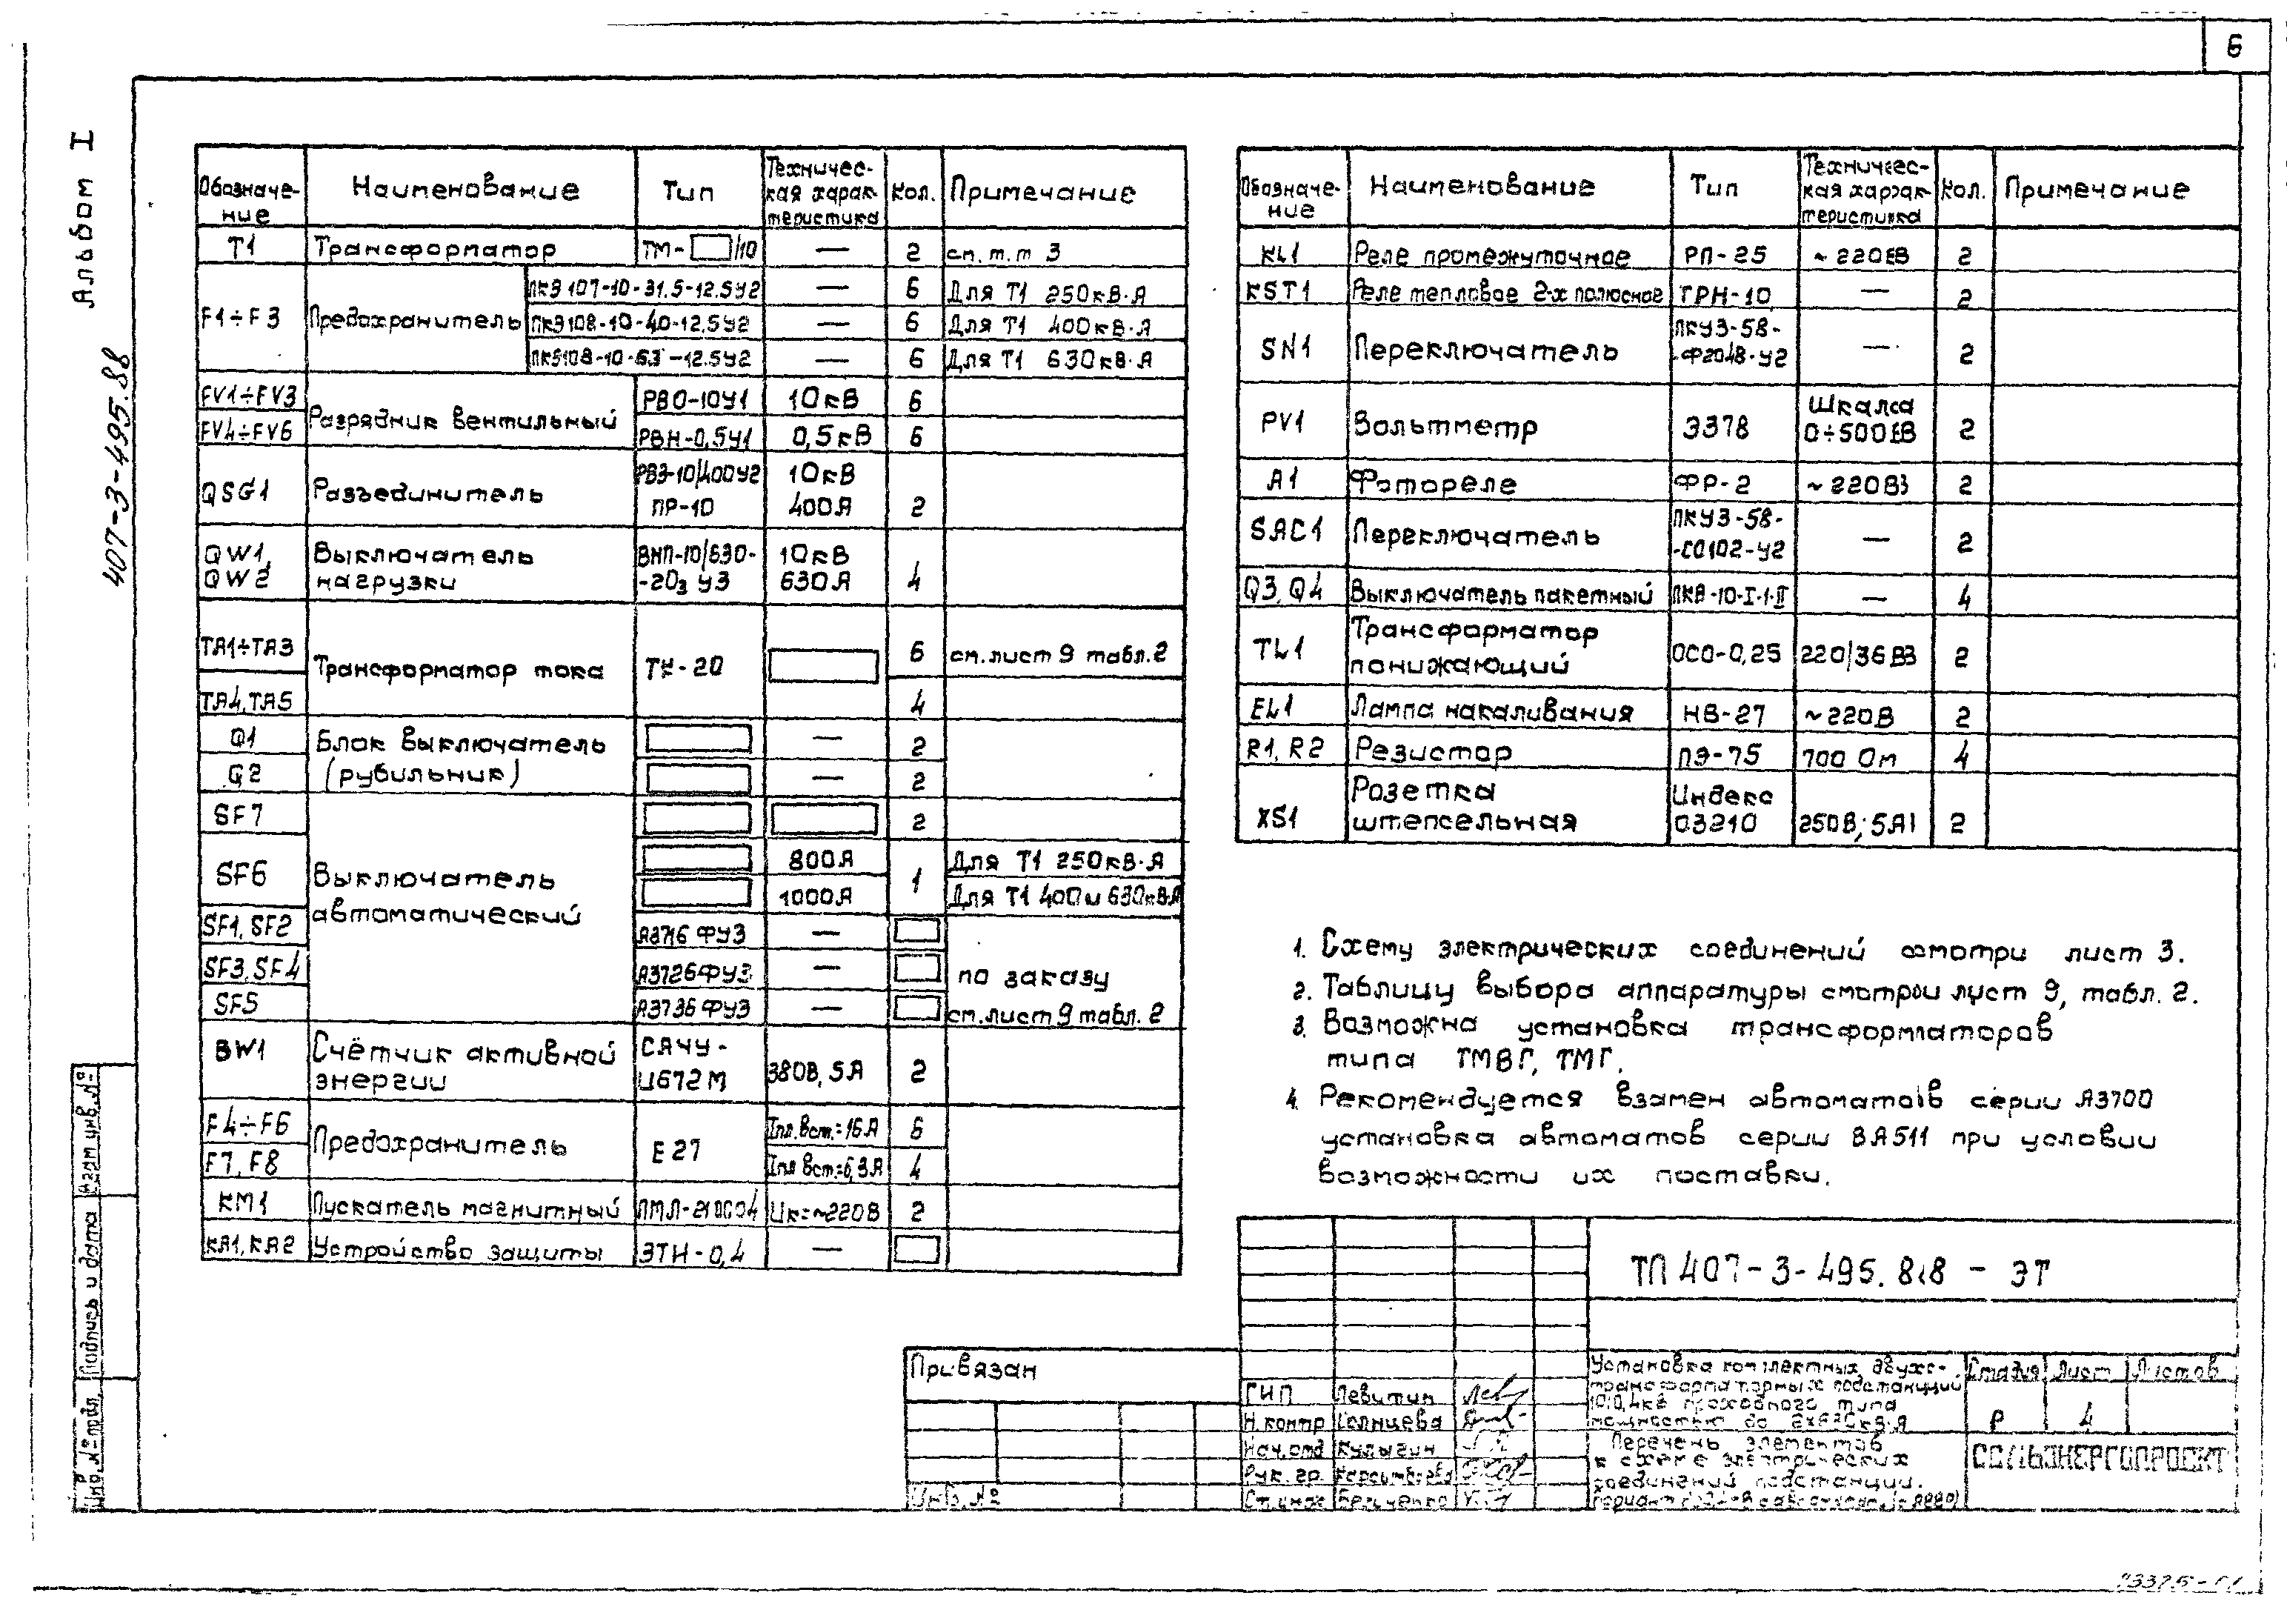 6
Альбом I
407-3-495.88
Обозначе-
ние
Наименование
Тип
Техничес-
кая харак-
теристика
Кол.
Примечание
T1
Трансформатор
ТМ- /10
—
2
см. т.т 3
F1÷F3
Предохранитель
ПКЭ107-10-31.5-12.5У2
—
6
Для Т1 250кВ·А
ПКЭ108-10-40-12.5У2
—
6
Для Т1 400кВ·А
ПКЭ108-10-63-12.5У2
—
6
Для Т1 630кВ·А
FV1÷FV3
Разрядник вентильный
РВО-10У1
10кВ
6
FV4÷FV6
РВН-0,5У1
0,5кВ
6
QSG1
Разъединитель
РВЗ-10/400У2
ПР-10
10кВ
400А
2
QW1,
QW2
Выключатель
нагрузки
ВНП-10/630-
-20з У3
10кВ
630А
4
TA1÷TA3
Трансформатор тока
ТК-20
6
см. лист 9 табл. 2
TA4, TA5
4
Q1
Блок выключатель
(рубильник)
—
2
Q2
—
2
SF7
Выключатель
автоматический
2
SF6
800А
1
Для Т1 250кВ·А
1000А
Для Т1 400и 630кВА
SF1, SF2
А3716 ФУ3
—
SF3, SF4
А3726ФУ3
—
по заказу
SF5
А3736ФУ3
—
см. лист 9 табл. 2
BW1
Счётчик активной
энергии
САЧУ-
И672М
380В, 5А
2
F4÷F6
Предохранитель
Е27
Iпл. вст.=16А
6
F7, F8
Iпл вст.=6,3А
4
KM1
Пускатель магнитный
ПМЛ-210004
Uк=~220В
2
KA1, KA2
Устройство защиты
ЗТН-0,4
—
Обозначе-
ние
Наименование
Тип
Техничес-
кая харак-
теристика
Кол.
Примечание
KL1
Реле промежуточное
РП-25
~220В
2
KST1
Реле тепловое 2-х полюсное
ТРН-10
—
2
SN1
Переключатель
ПКУ3-58-
-Ф2048-У2
—
2
PV1
Вольтметр
Э378
Шкала
0÷500В
2
A1
Фотореле
ФР-2
~220В
2
SAC1
Переключатель
ПКУ3-58-
-С0102-У2
—
2
Q3, Q4
Выключатель пакетный
ПКВ-10-I-1-II
—
4
TL1
Трансформатор
понижающий
ОСО-0,25
220/36В
2
EL1
Лампа накаливания
НВ-27
~220В
2
R1, R2
Резистор
ПЭ-75
700 Ом
4
XS1
Розетка
штепсельная
Индекс
03210
250В; 5А
2
1. Схему электрических соединений смотри лист 3.
2. Таблицу выбора аппаратуры смотри лист 9, табл. 2.
3. Возможна установка трансформаторов
типа ТМВГ, ТМГ.
4. Рекомендуется взамен автоматов серии А3700
установка автоматов серии ВА511 при условии
возможности их поставки.
ТП 407-3-495.88 - ЭТ
Привязан
Инв. №
ГИП
Левитин
Н. контр
Солнцева
Нач. отд
Кулыгин
Рук. гр.
Ст. инж
Установка комплектных двухс-
трансформаторных подстанций
10/0,4кВ проходного типа
мощностью до 2х630кВ·А
Стадия
Лист
Листов
Р
4
Перечень элементов
к схеме электрических
соединений подстанции.
СЕЛЬЭНЕРГОПРОЕКТ
Инв. № подл.
Подпись и дата
Взам. инв. №